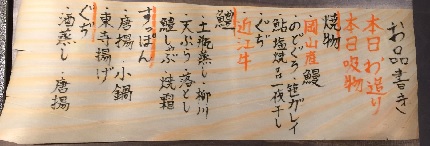 お品書き
本日お造り
本日吸物
焼物
岡山産鰻
・のどぐろ・笹ガレイ
・鮎塩焼き・一夜干し
ぐぢ
近江牛
鱧
・土瓶蒸し・柳川
・天ぷら・落とし
・鱧しゃぶ・焼霜
すっぽん
・唐揚・小鍋
・東寺揚げ
ぐぢ
・酒蒸し・唐揚